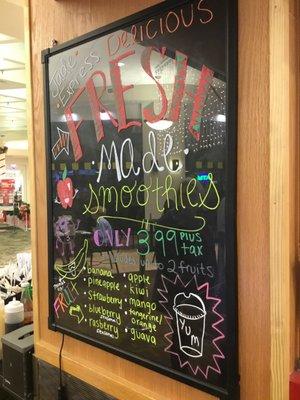 Jade
Express
Delicious
FRESH
Made
Smoothies
ONLY 3.99 PLUS tax
includes up to 2 fruits
FRUIT
• banana
• Pineapple
• Strawberry
• blueberry
• rasberry
• apple
• kiwi
• mango
• tangerine/
orange
• guava
YUM